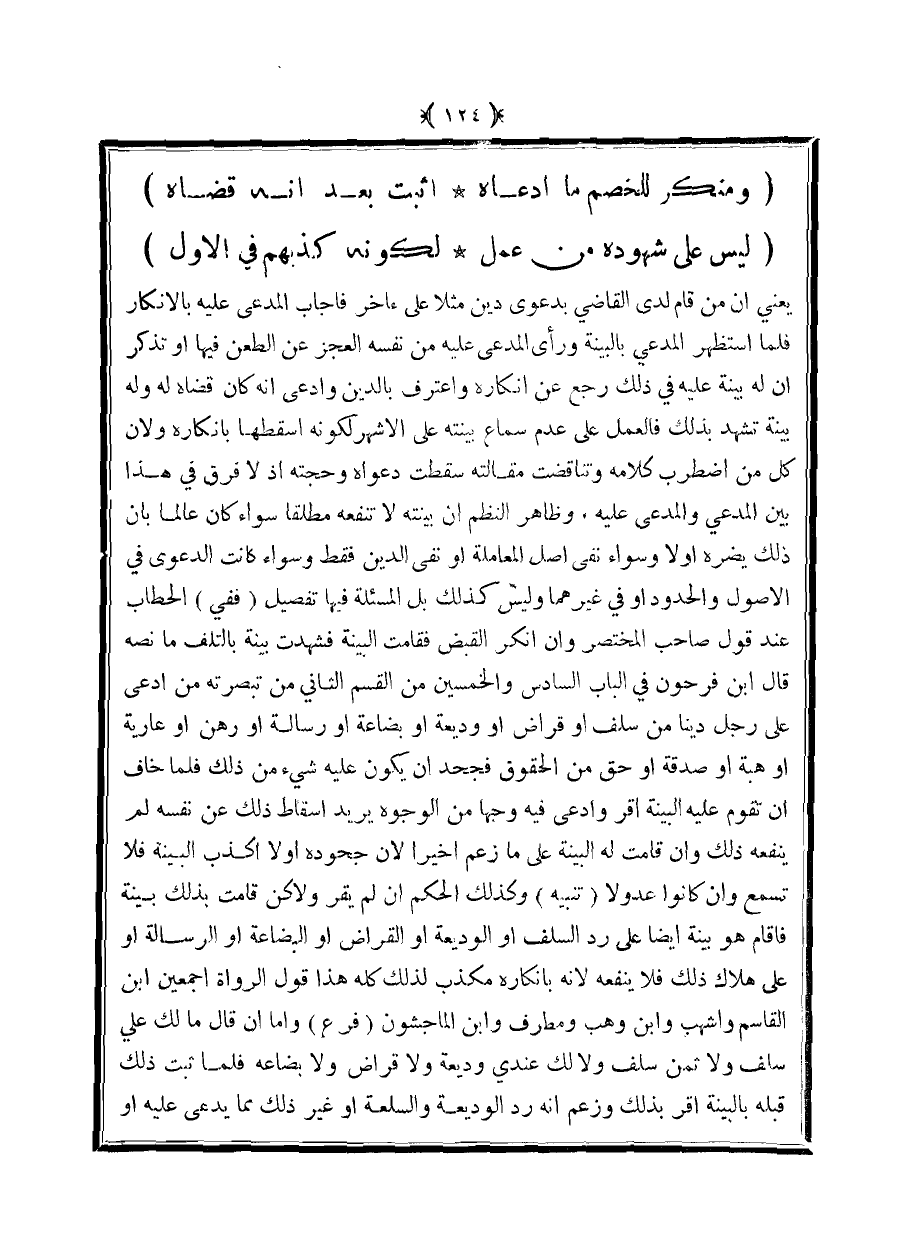 ﴿ ١٢٤ ﴾
( ومنكر للخصم ما ادعاه * اثبت بعد انه قضاه )
( ليس على شهوده من عمل * لكونه كذبهم في الاول )
يعني ان من قام لدى القاضي بدعوى دين مثلا على ءاخر فاجاب المدعى عليه بالانكار
فلما استظهر المدعي بالبينة ورأى المدعى عليه من نفسه العجز عن الطعن فيها او تذكر
ان له بينة عليه في ذلك رجع عن انكاره واعترف بالدين وادعى انه كان قضاه له وله
بينة تشهد بذلك فالعمل على عدم سماع بينته على الاشهر لكونه اسقطها بانكاره ولان
كل من اضطرب كلامه وتناقضت مقالته سقطت دعواه وحجته اذ لا فرق في هذا
بين المدعي والمدعى عليه ، وظاهر النظم ان بينته لا تنفعه مطلقا سواء كان عالما بان
ذلك يضره اولا وسواء نفى اصل المعاملة او نفى الدين فقط وسواء كانت الدعوى في
الاصول والحدود او في غيرهما وليس كذلك بل المسئلة فيها تفصيل ( ففي ) الحطاب
عند قول صاحب المختصر وان انكر القبض فقامت البينة فشهدت بينة بالتلف ما نصه
قال ابن فرحون في الباب السادس والخمسين من القسم الثاني من تبصرته من ادعى
على رجل دينا من سلف او قراض او وديعة او بضاعة او رسالة او رهن او عارية
او هبة او صدقة او حق من الحقوق فجحد ان يكون عليه شيء من ذلك فلما خاف
ان تقوم عليه البينة اقر وادعى فيه وجها من الوجوه يريد اسقاط ذلك عن نفسه لم
ينفعه ذلك وان قامت له البينة على ما زعم اخيرا لان جحوده اولا اكذب البينة فلا
تسمع وان كانوا عدولا ( تنبيه ) وكذلك الحكم ان لم يقر ولاكن قامت بذلك بينة
فاقام هو بينة ايضا على رد السلف او الوديعة او القراض او البضاعة او الرسالة او
على هلاك ذلك فلا ينفعه لانه بانكاره مكذب لذلك كله هذا قول الرواة اجمعين ابن
القاسم واشهب وابن وهب ومطرف وابن الماجشون ( فرع ) واما ان قال ما لك علي
سلف ولا ثمن سلف ولا لك عندي وديعة ولا قراض ولا بضاعه فلما ثبت ذلك
قبله بالبينة اقر بذلك وزعم انه رد الوديعة والسلعة او غير ذلك مما يدعى عليه او